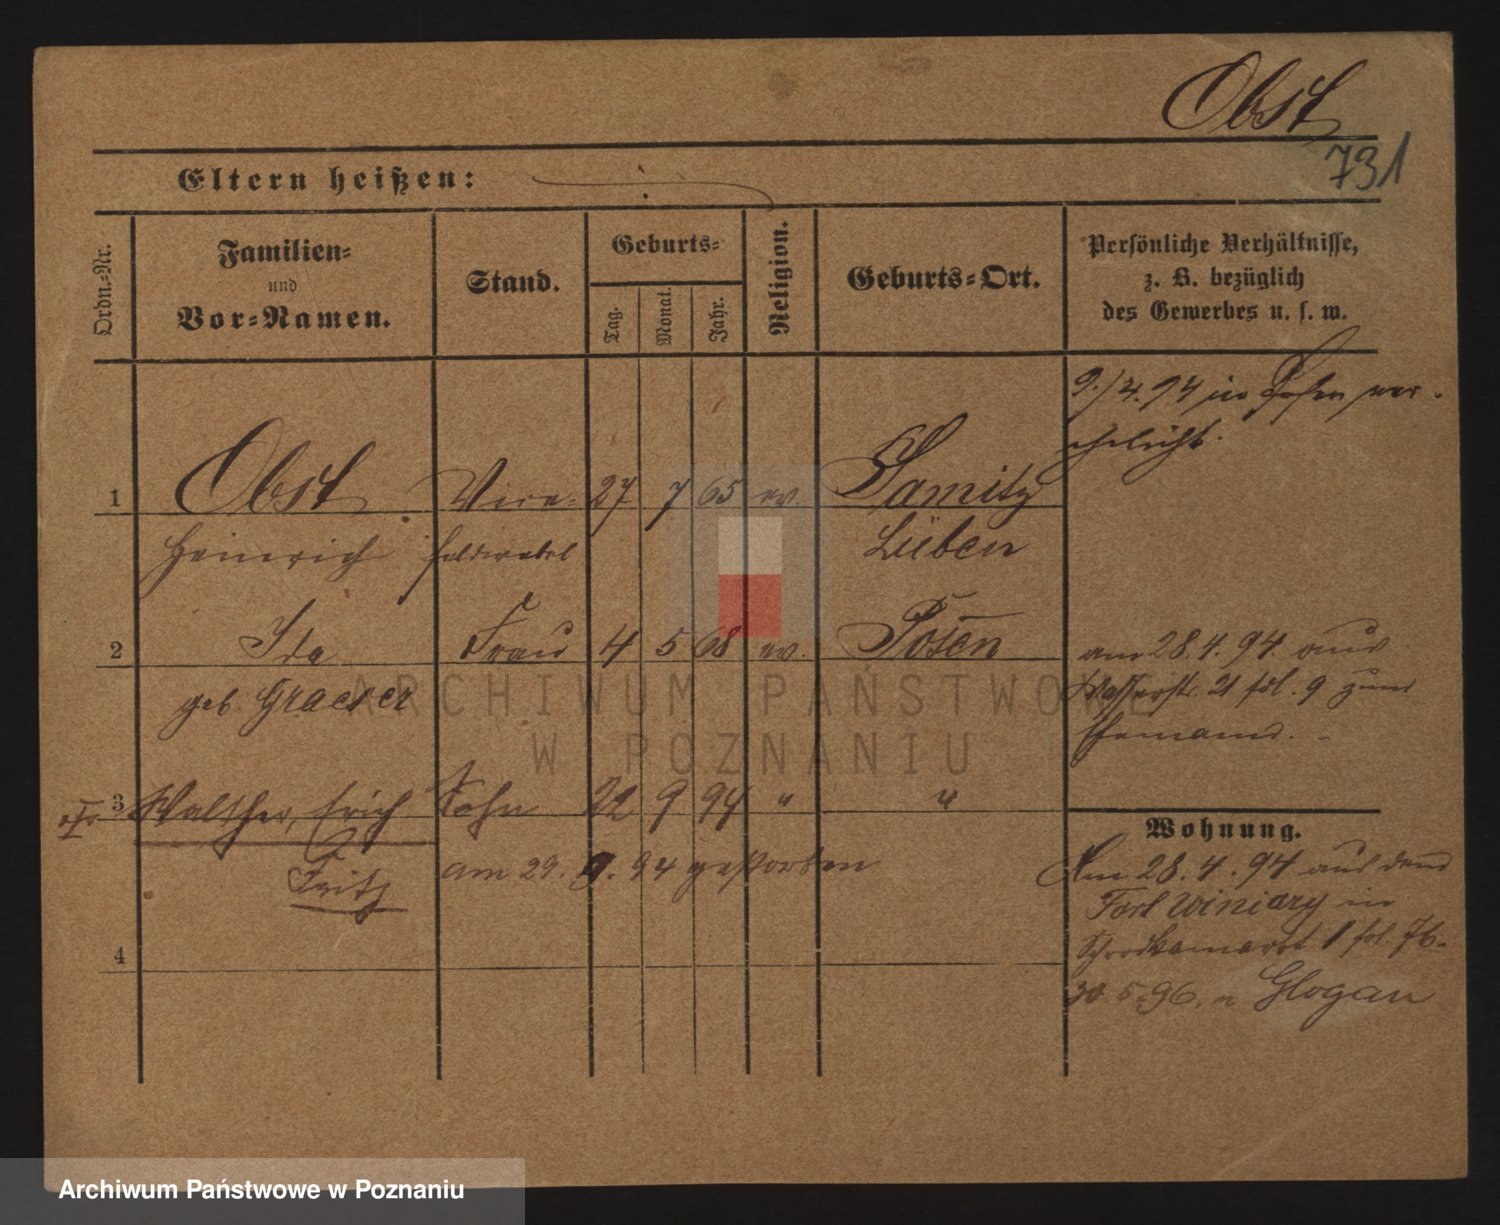 Obst
731
Eltern heißen:
Ordn.-Nr.
Familien-
und
Vor-Namen.
Stand.
Geburts-
Tag.
Monat.
Jahr.
Religion.
Geburts-Ort.
Persönliche Verhältnisse,
z. B. bezüglich
des Gewerbes u. s. w.
9./4. 94 in Posen ver-
ehelicht.
1 Obst Vice- 27 7 65 ev.
Heinrich feldwebel Lüben
2 Ida Frau 4 5 68 ev. Posen
geb. Graeser
am 28. 4. 94 aus
Wasserstr. 21 fol. 9 zum
Ehemann.
3 Walther, Erich Sohn 22 9 94 " "
Fritz
am 29. 9. 94 gestorben
4
Wohnung.
Am 28. 4. 94 aus dem
Fort Winiary in
1 fol. 76.
30. 5. 96. n Glogau
ARCHIWUM PAŃSTWOWE
W POZNANIU
Archiwum Państwowe w Poznaniu